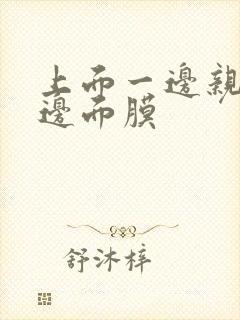 上而一邊親
邊而膜
舒沐梓